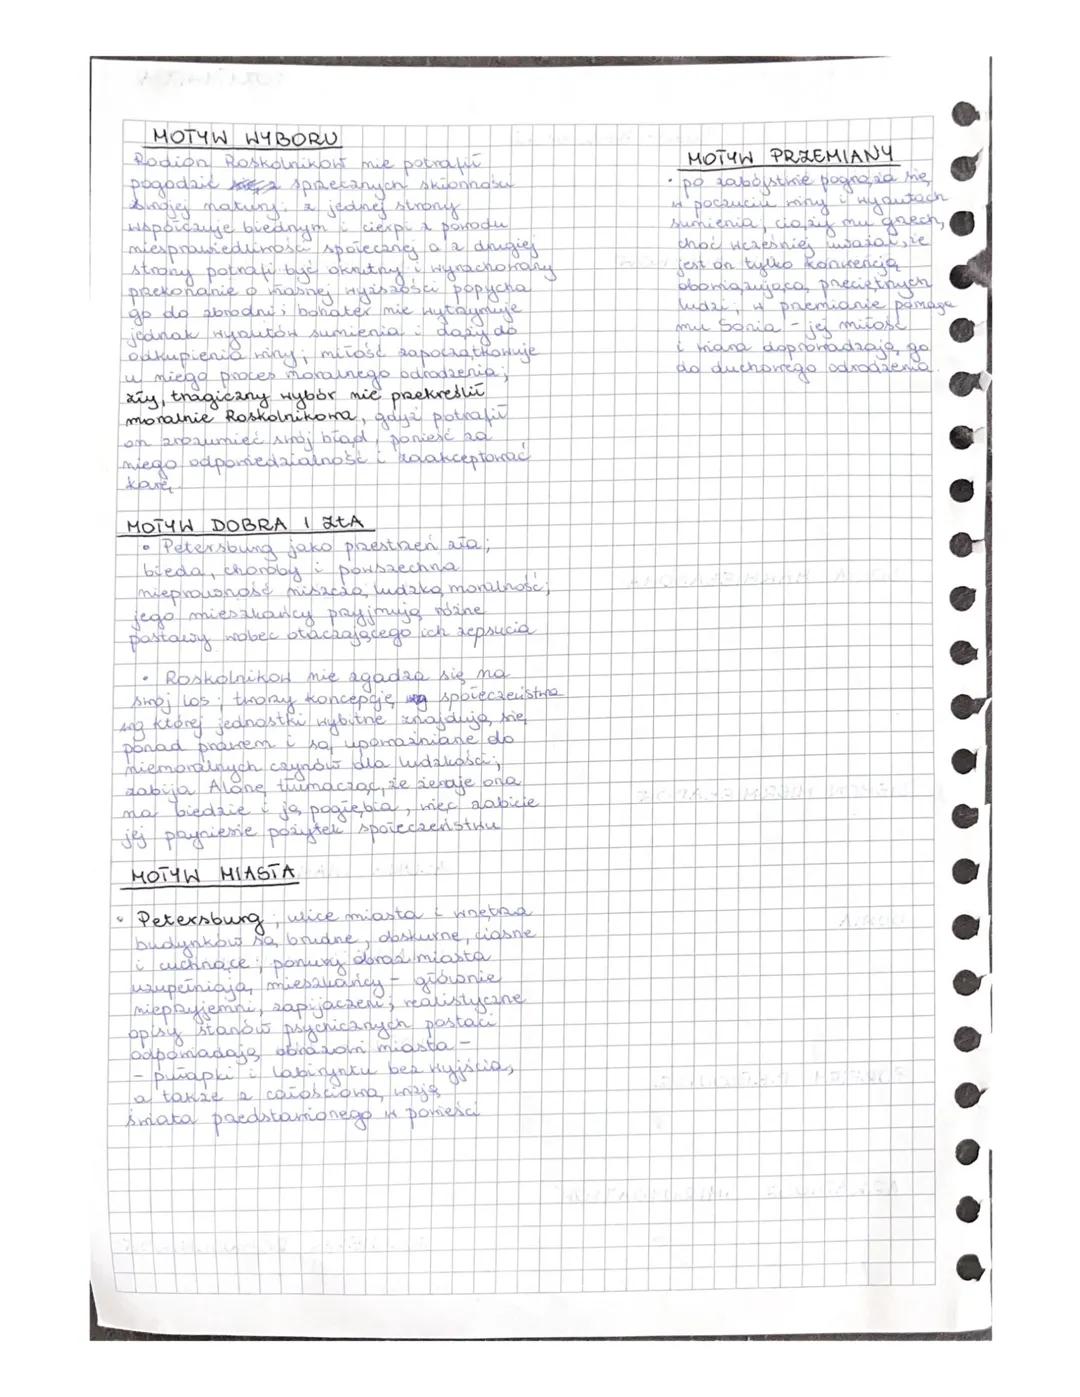 MOTYW WYBORU
Rodion Roskolnikow nie potrafił
pogodzić sprzecznych skłonności
swojej natury: z jednej strony
współczuje biednym i cierpi z powodu
niesprawiedliwości społecznej a z drugiej
strony potrafi być okrutny i wyrachowany
przekonanie o własnej wyższości popycha
go do zbrodni; bohater nie wytrzymuje
jednak wyrzutów sumienia i dąży do
odkupienia winy; miłość zapoczątkowuje
w niego proces moralnego odrodzenia;
zły, tragiczny wybór nie przekreślił
moralnie Roskolnikowa, gdyż potrafił
on zrozumieć swój błąd, ponieść za
niego odpowiedzialność i zaakceptować
karę
MOTYW DOBRA I ZŁA
• Petersburg jako przestrzeń zła;
bieda, choroby i powszechna
nieprawość niszczą ludzką moralność;
jego mieszkańcy przyjmują różne
postawy wobec otaczającego ich zepsucia
• Roskolnikow nie zgadza się na
swój los; tworzy koncepcję społeczeństwa
wg której jednostki wybitne znajdują się
ponad prawem i są upoważniane do
niemoralnych czynów dla ludzkości;
zabija Alonę tłumacząc, że żeruje ona
na biedzie i ją pogłębia, więc zabicie
jej przyniesie pożytek społeczeństwu
MOTYW MIASTA
• Petersburg; ulice miasta i wnętrza
budynków są brudne, obskurne, ciasne
i cuchnące; ponury obraz miasta
uzupełniają mieszkańcy - głównie
nieprzyjemni, zapijaczeni; realistyczne
opisy stanów psychicznych postaci
odpowiadają obrazowi miasta -
- pułapki i labiryntu bez wyjścia,
a także z całościową wizją
świata przedstawionego w powieści
MOTYW PRZEMIANY
• po zabójstwie pogrąża się
w poczuciu winy i wyrzutach
sumienia; ciąży mu grzech,
choć wcześniej uważał, że
jest on tylko konwencją
obowiązującą przeciętnych
ludzi; w przemianie pomaga
mu Sonia - jej miłość
i wiara doprowadzają go
do duchowego odrodzenia.